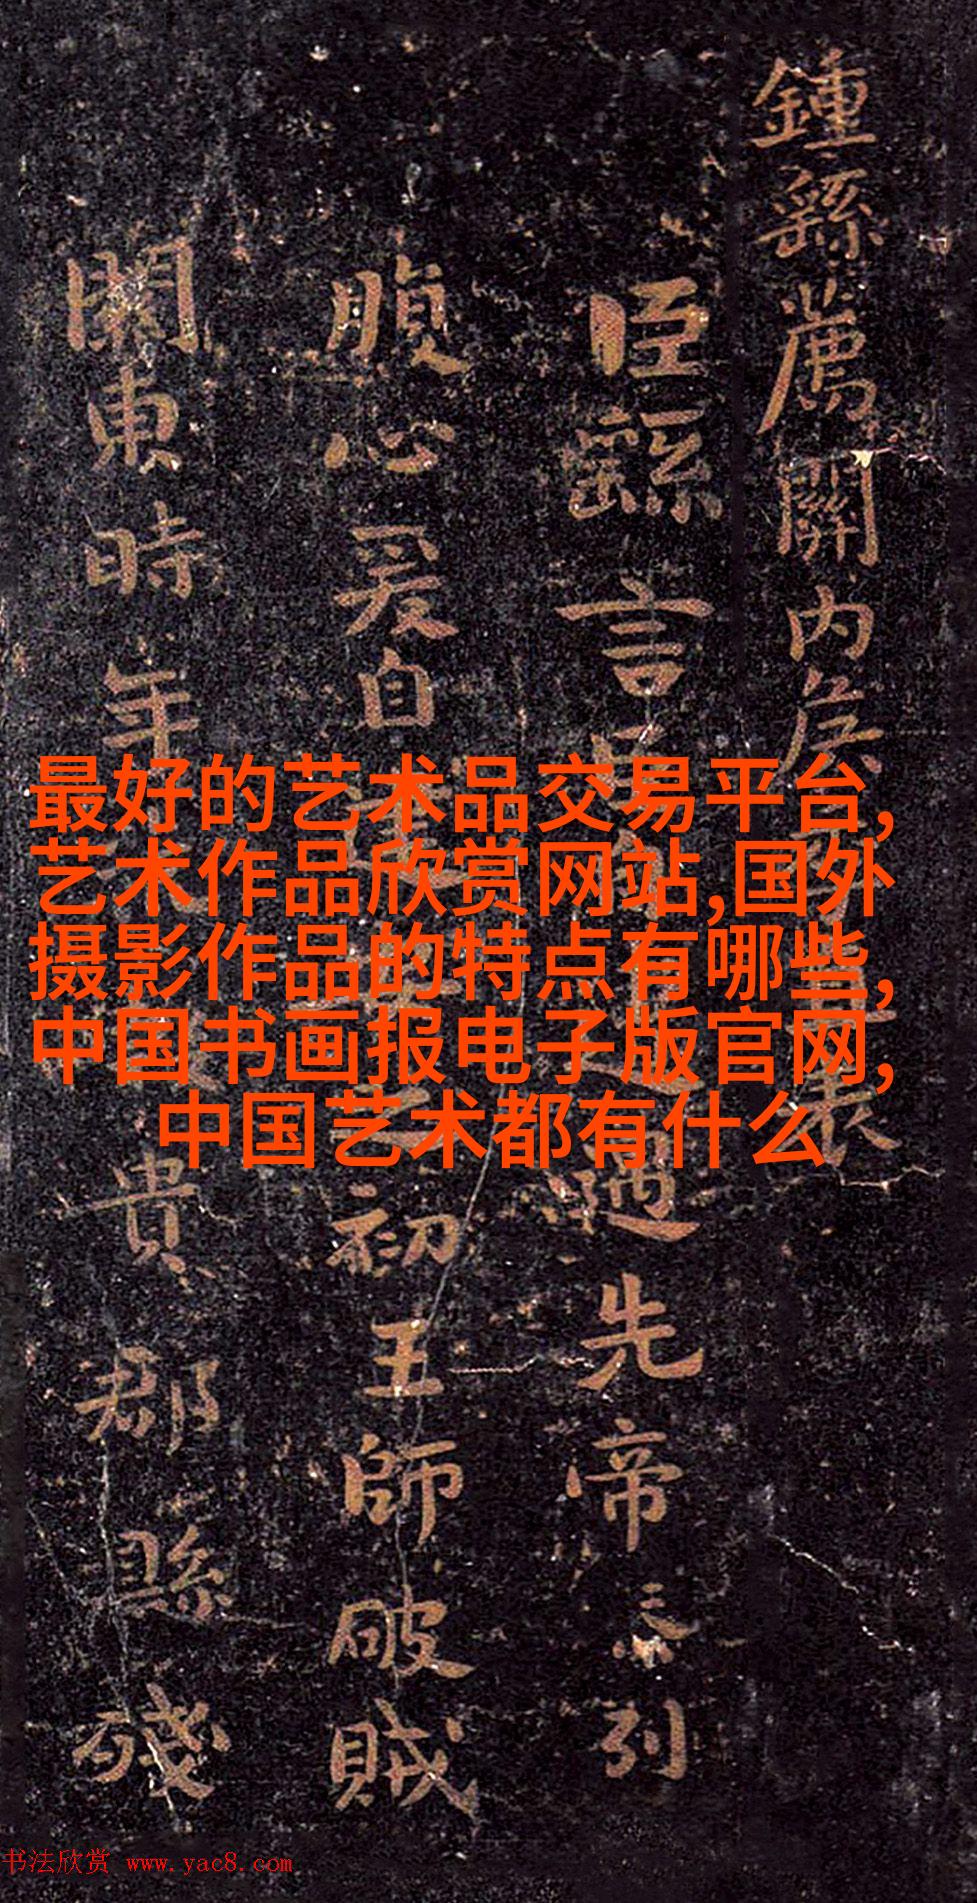 鍾繇薦關内侯表
臣繇言遇先帝忝列
腹心爰自初王師破賊
關東時年貴郡縣殘
最好的艺术品交易平台,
艺术作品欣赏网站,国外
摄影作品的特点有哪些,
中国书画报电子版官网,
中国艺术都有什么
书法欣赏 www.yac8.com